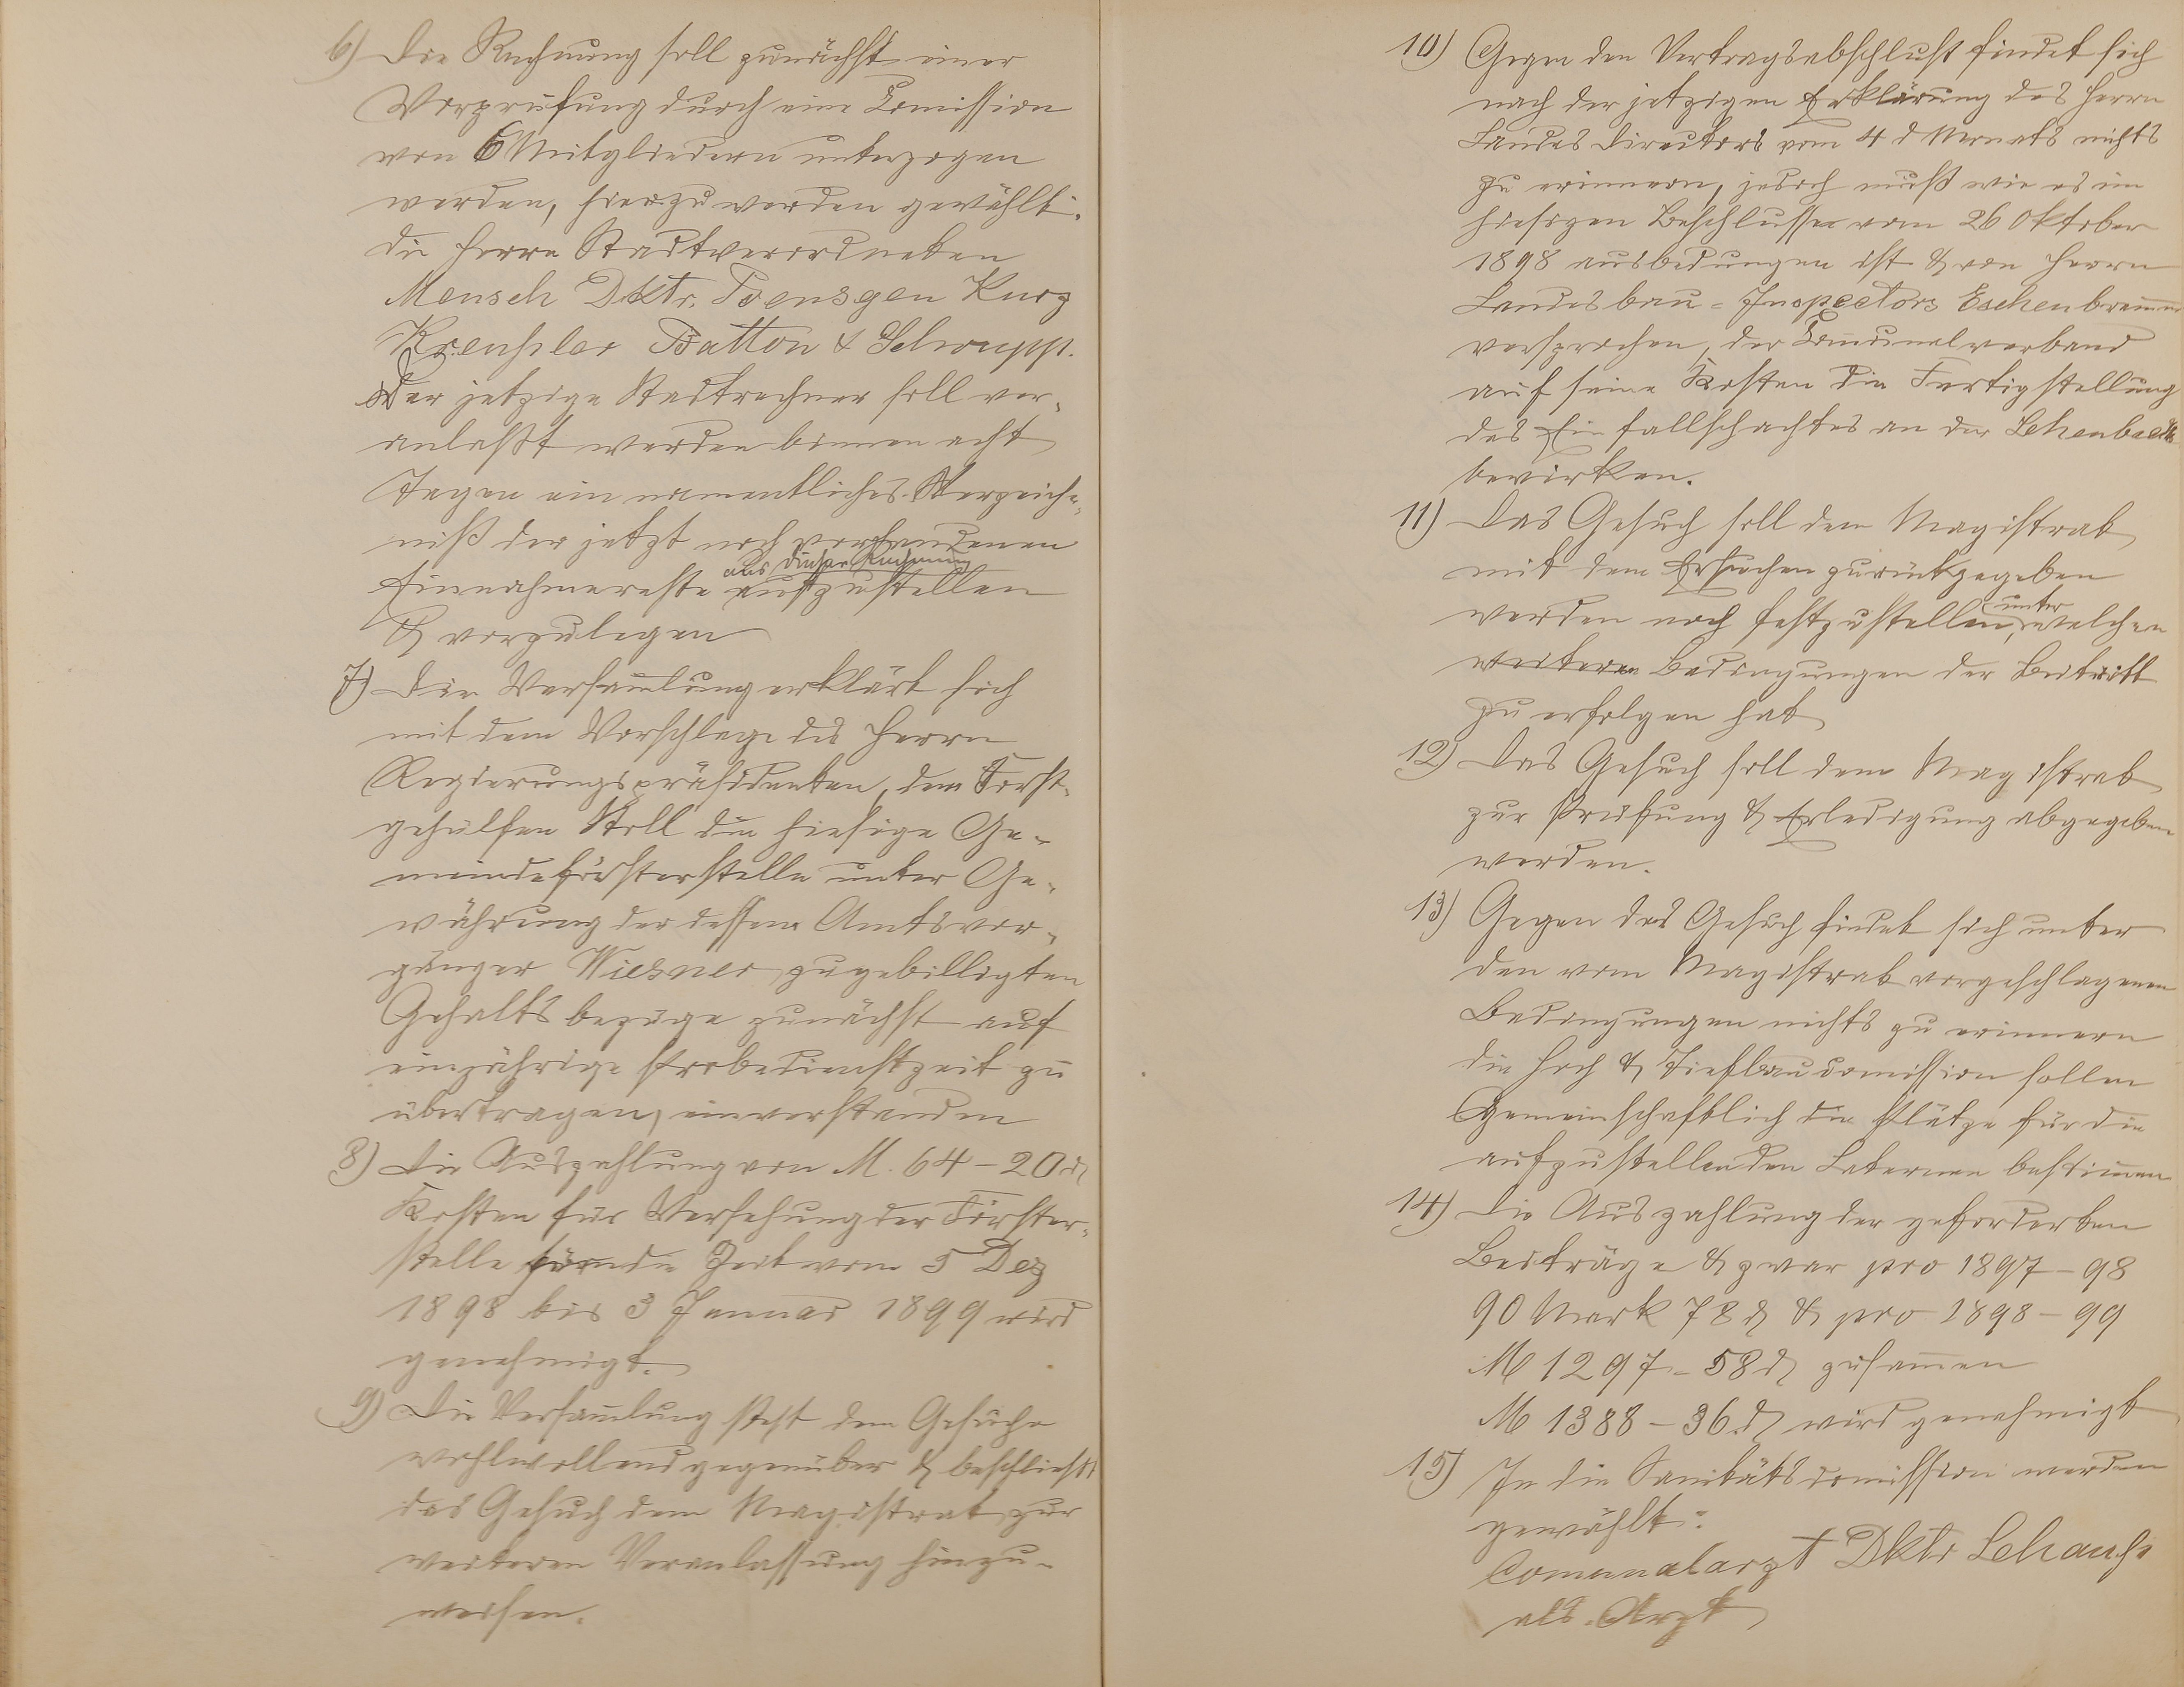 6) Die Rechnung soll zunächst einer
Vorprüfung durch eine Comission
von 6 Mitgliedern unterzogen
werden, hierzu werden gewählt:
die Herrn Stadtverordneten
Mensch Dktr. Poensgen Kurz
Krenzler Batton & Schrupp.
Der jetzige Stadtrechner soll ver-
anlaßt werden binnen acht
Tagen ein namentliches Verzeich-
niß der jetzt noch vorhandenen
aus dieser Rechnung
Einnahmereste aufzustellen
& vorzulegen
7) Die Versamlung erklärt sich
mit dem Vorschlage des Herrn
Regierungspräsidenten, dem Forst-
gehülfen Stoll die hiesige Ge-
meindeförsterstelle unter Ge-
währung der dessem Amtsvor-
gänger Wiesner zugebilligten
Gehaltsbezüge zunächst auf
einjährige Probedienstzeit zu
übertragen, einverstanden
8) Die Auszahlung von M. 64-20 d
Kosten für Versehung der Förster-
stelle für die Zeit vom 5 Dez
1898 bis 3 Januar 1899 wird
genehmigt.
9) Die Versamlung steht dem Gesuche
wohlwollend gegenüber & beschließt
das Gesuch dem Magistrat zur
weiteren Veranlassung hinzu-
weisen.
10) Gegen den Vertragsabschluß findet sich
nach der jetzigen Erklärung des Herrn
Landes Directors vom 4 d Monats nichts
zu erinnern, jedoch muß wie es im
hiesigen Beschlusse vom 26 Oktober
1898 ausbedungen ist & von Herrn
Landesbau-Inspectors Eschenbrenner
versprochen, der Comunalverband
auf seine Kosten die Fertigstellung
des Einfallschachtes an der
bewirken.
11) Das Gesuch soll dem Magistrat
mit dem Ersuchen zurückgegeben
unter
werden noch festzustellen, welchen
weiteren Bedingungen der Beitritt
zu erfolgen hat
12) Das Gesuch soll dem Magistrat
zur Prüfung & Erledigung abgegeben
werden.
13) Gegen das Gesuch findet sich unter
den vom Magistrat vorgeschlagenen
Bedingungen nichts zu erinnern
die Hoch & Tiefbaucomission sollen
Gemeinschaftlich die Plätze für die
aufzustellenden Laternen bestimen
14) Die Auszahlung der geforderten
Beiträge & zwar pro 1897-98
90 Mark 78 d & pro 1898-99
M 1297-58 d zusamen
M 1388-36 d wird genehmigt
15) In die Sanitätscomission werden
gewählt:
Comunalarzt Dktr
als Arzt